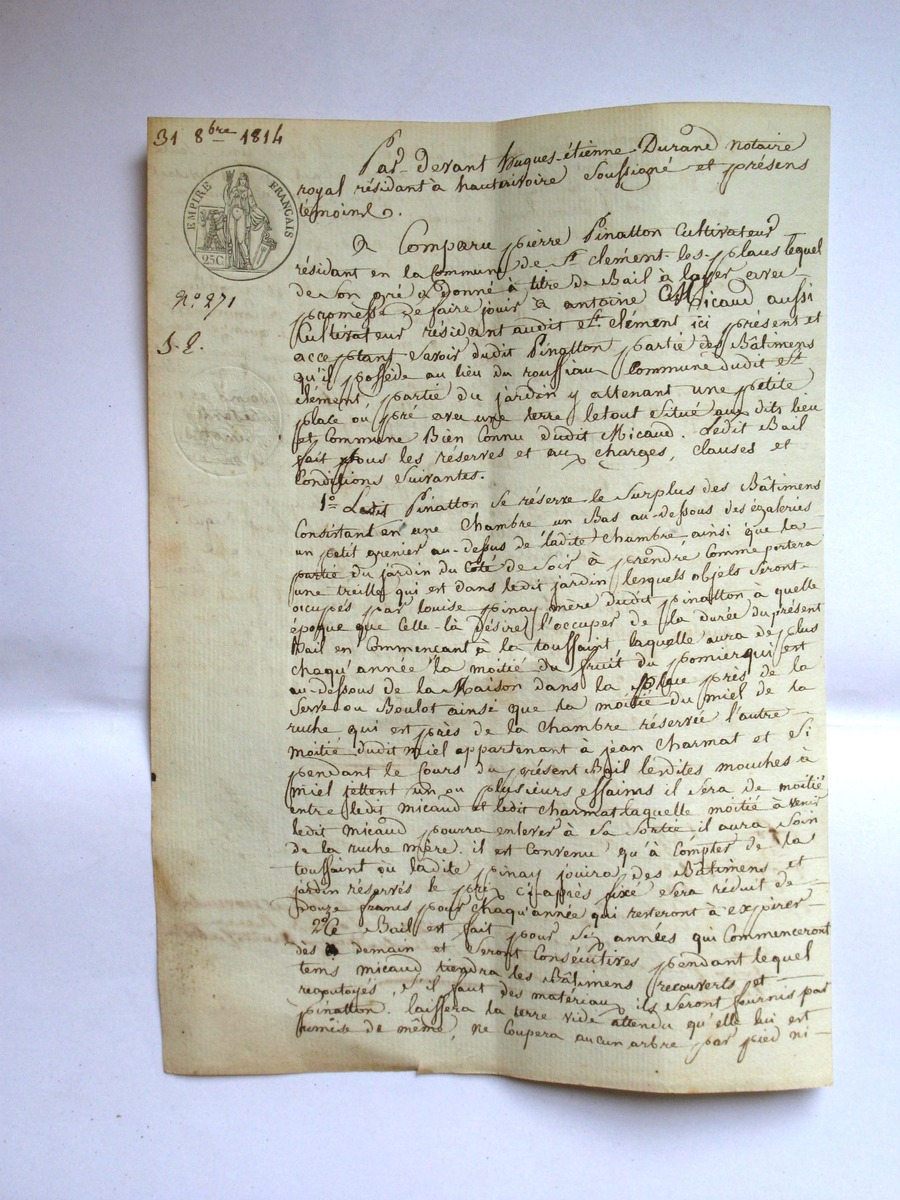 31 8bre 1814
EMPIRE FRANÇAIS
25C
N.o 271
Par devant hugues-étienne Durand notaire
royal résidant à hauterivoire soussigné et présens
témoins.
A Comparu pierre Pinatton Cultivateur
résidant en la Commune de St clement-les-places lequel
de Son gré a donné à titre de Bail à loyer avec
promesse de faire jouir à antoine Micaud aussi
Cultivateur résidant audit St clément ici présent et
acceptant Savoir dudit Pinatton partie des Bâtimens
qu'il possède au lieu du roussiau Commune dudit St
clément, partie du jardin y attenant une petite
place ou pré avec une terre le tout Situé aux dits lieu
et Commune Bien Connu dudit Micaud. Ledit Bail
fait sous les réserves et aux charges, clauses et
Conditions Suivantes.
1.o Ledit Pinatton Se réserve le Surplus des Bâtimens
Consistant en une Chambre un Bas au-dessous des galeries
un petit grenier au-dessus de ladite Chambre, ainsi que la
partie du jardin du Côté de Soir à prendre Comme portera
une treille qui est dans ledit jardin lesquels objets Seront
occupés par louise pinay mère dudit pinatton à quelle
époque que Celle-là désire l'occuper de la durée du présent
Bail en Commençant à la toussaint laquelle aura de plus
chaqu'année la moitié du fruit du pomier qui est
au-dessous de la Maison dans la place près de la
Serve ou Boulot ainsi que la moitié du miel de la
ruche qui est près de la Chambre réservée l'autre
moitié dudit miel appartenant à jean Charmat et Si
pendant le Cours du présent Bail lesdites mouches à
miel jettent un ou plusieurs essaims il Sera de moitié
entre ledit micaud et ledit charmat laquelle moitié à venir
ledit micaud pourra enlever à Sa Sortie il aura Soin
de la ruche mère. il est Convenu qu'à Compter de la
toussaint où ladite pinay jouira des Bâtimens et
jardin réservés le prix Ci-après fixé Sera réduit de
Douze francs pour chaqu'année qui resteront à expirer
2.o Ce Bail est fait pour Six années qui Commenceront
dès demain et Seront Consécutives pendant lequel
tems micaud tiendra les Bâtimens recouverts et
repotoyés, S'il faut des matériaux ils Seront fournis par
pinatton. laissera la terre vide attendu qu'elle lui est
remise de même, ne Coupera aucun arbre par pied ni